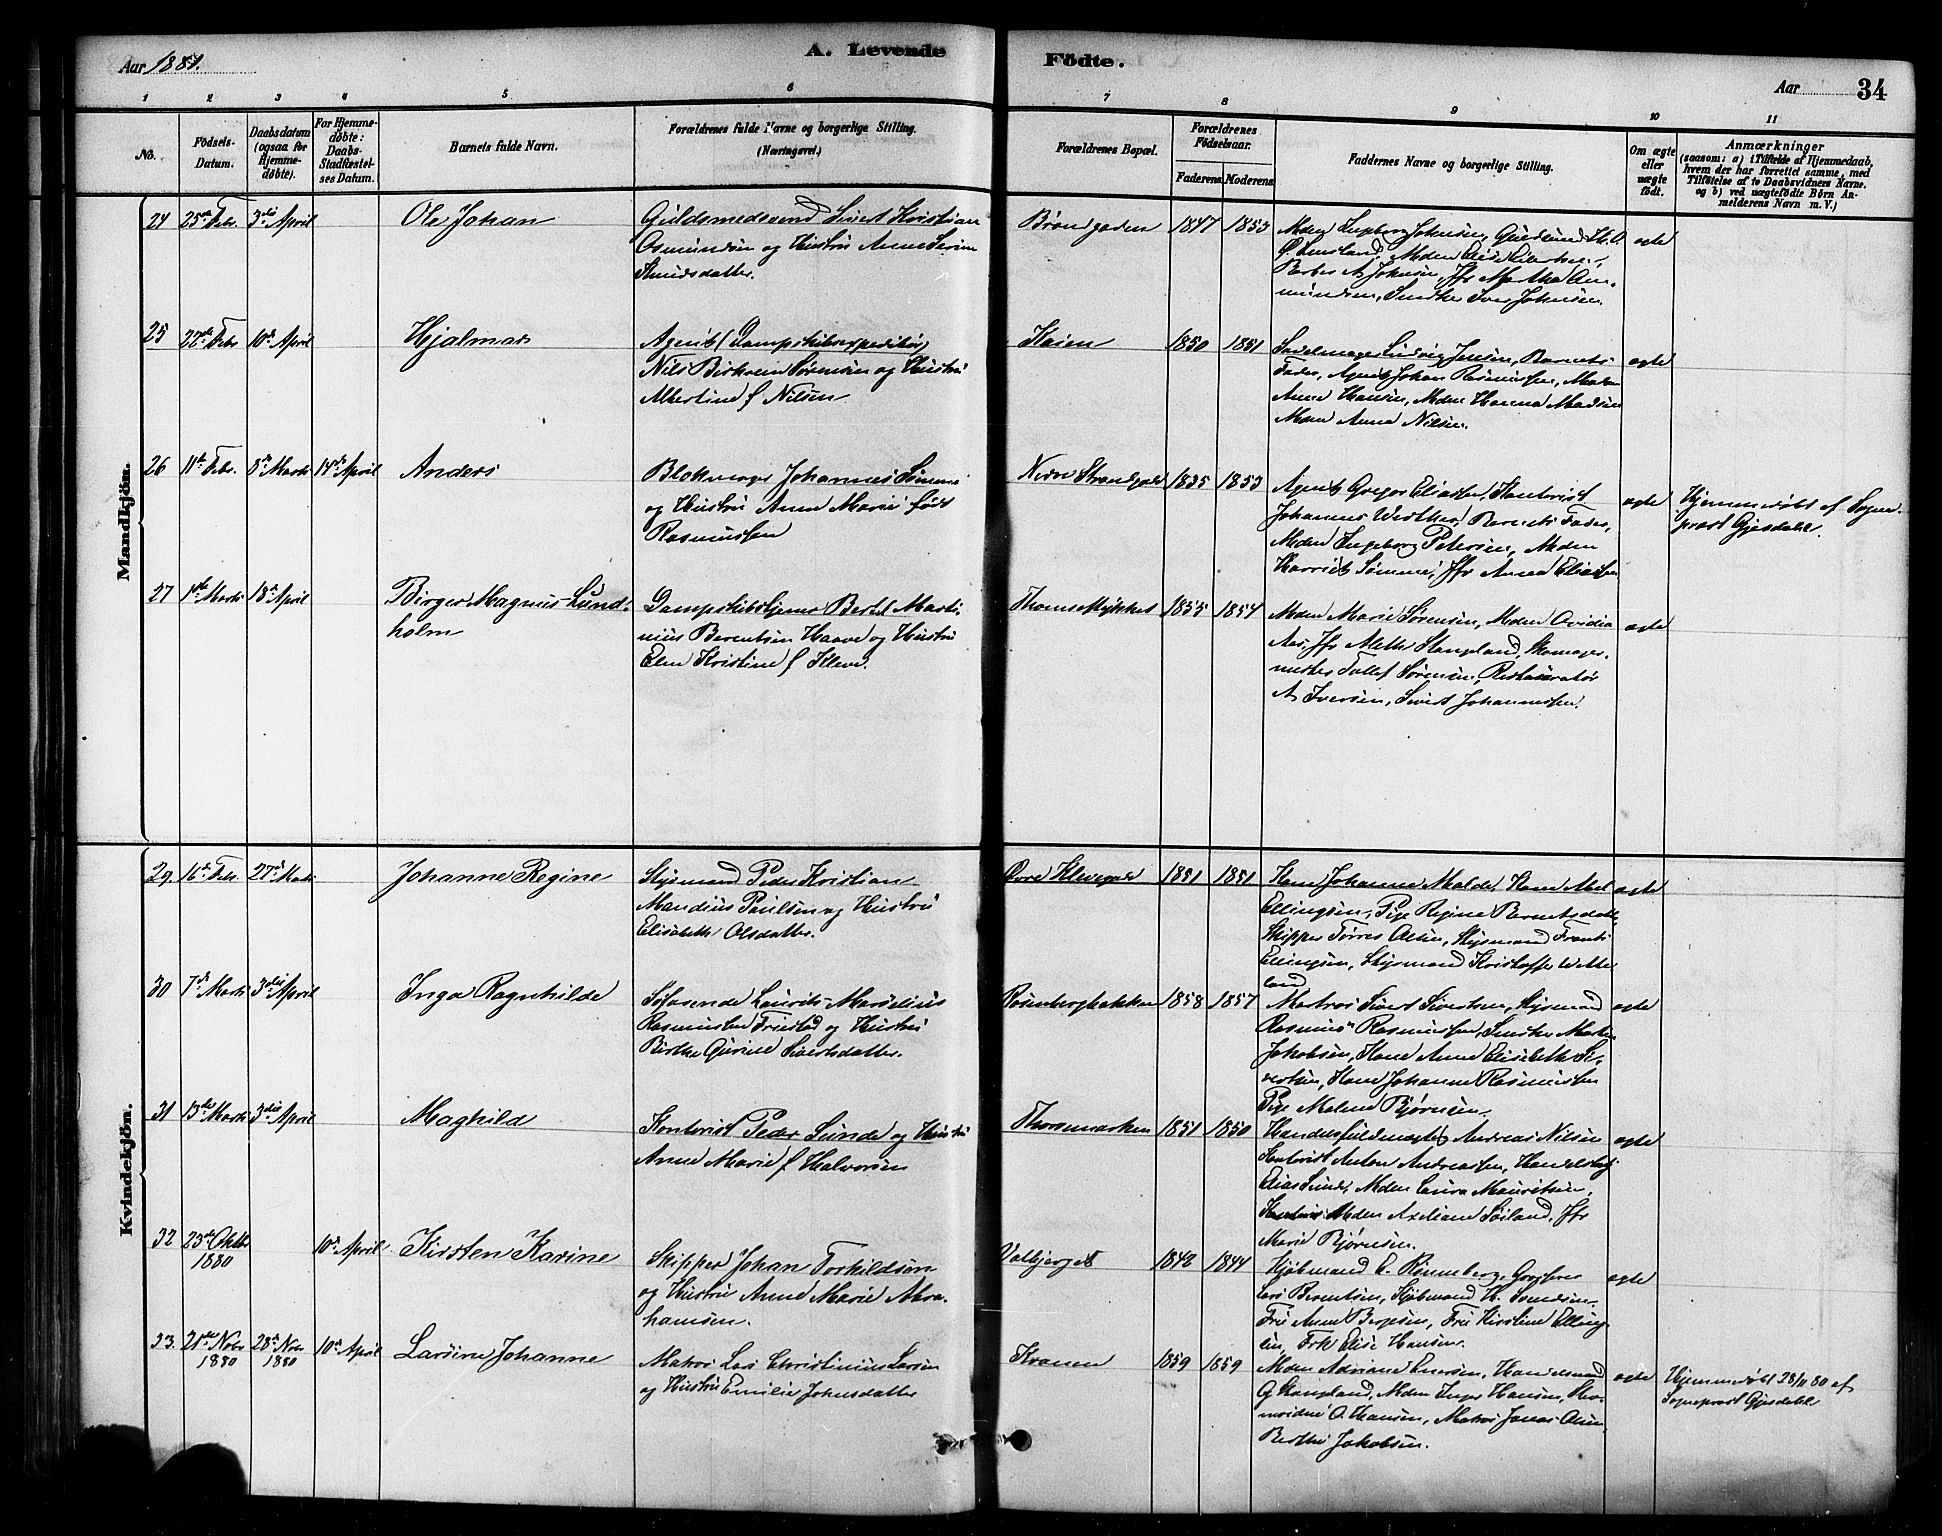 A. Levende
Födte.
Aar 1881.
Aar
34
1
2
3
4
5
6
7
8
9
10
11
No.
Födsels-
Datum.
Daabsdatum
(ogsaa for
Hjemme-
døbte).
For Hjemme-
døbte:
Daabs-
Stadfæstel-
ses Datum.
Barnets fulde Navn.
Forældrenes fulde Navne og borgerlige Stilling.
(Næringsvei.)
Forældrenes Bopæl.
Forældrenes
Födselsaar.
Faderens.
Moderens.
Faddernes Navne og borgerlige Stilling.
Om ægte
eller
uægte
født.
Anmærkninger
(saasom: a) i Tilfælde af Hjemmedaab,
hvem der har forrettet samme, med
Tilføielse af to Daabsvidners Navne.
og b) ved uægtefødte Børn An-
melderens Navn m. V.)
Mandkjön.
24 25de Febr. 3die April
Ole Johan
Guldsmedsvend Sivert Kristian
Osmundsen og Hustru Anne Serine
Knudsdatter.
1847 1853
Mden Ingeborg Johnsen,
Martha Om-
mundsen, Smed Iver Johnsen.
ægte
25 22de Febr 10de April
Hjalmar
Agent (Dampskibsexpeditør)
Nils Birkeem Sørensen og Hustru
Albertine f Nilsen
Kaien
1850 1851
Sadelmager Ludvig Jensen, Barnets
Fader, Agent Johan Rasmussen, Mden
Anne Hansen, Mden Hanna Madsen
Mden Anna Nilsen.
ægte
26 11te Febr. 8de Marts 14de April
Anders
Blokmager Johannes Sømme
og Hustru Anne Marie født
Rasmussen
Nedre Strandgade
1835 1853
Agent Gregor Eliassen, Kontorist
Johannes Werther, Barnets Fader,
Mden Ingeborg Petersen, Mden
Harriet Sømme, Jfr Anna Eliassen
ægte
Hjemmedøbt af Sogne-
præst Gjesdahl.
27 1ste Marts 18de April
Birger Magnus Lund-
holm
Dampskibstjener Bertel Marti-
nius Berentsen Haave og Hustru
Elen Kristine f Kleve.
1855 1854
Mden Marie Sørensen, Mden Ovidia
Aas, Jfr Mette Stangeland, Skomager-
mester Tollef Sørensen, Restauratør
A. Iversen, Sivert Johannessen.
ægte
Kvindekjön.
29. 16de Febr. 27de Marts
Johanne Regine
Styrmand Peder Kristian
Mandius Paulsen og Hustru
Elisabeth Olsdatter.
Øvre Klevegade
1851 1851
Kone Johanna Malde, Kone Abel
Ellingsen, Pige Regine Berentsdatter,
Skipper Tørres Olsen, Styrmand Frants
Ellingsen, Styrmand Kristoffer Wette
land
ægte
30 7de Marts 3die April
Inga Ragnhilde
Søfarende Laurits Marselius
Rasmussen Friestad og Hustru
Birthe Gurine Sivertsdatter.
Rosenbergbakken
1858 1857
Matros Sivert Sivertsen, Styrmand
Rasmus Rasmussen, Smed Martin
Jakobsen, Kone Anne Elisabeth Si-
vertsen, Kone Johanne Rasmussen
Pige Malene Bjørnsen.
ægte
31 13de Marts 3die April
Maghild
Kontorist Peder Sunde og Hustru
Anne Marie f Halvorsen
Thorsmarken
1851 1850
Handelsfuldmægtig Andreas Nilsen
Kontorist Anton Andreassen, Handelsbetj
Elias Sunde, Mden Laura Mauritsen,
Mden Axeliane Søiland, Jfr
Marie Bjørnsen.
ægte
32 23de Oktbr
1880
10de April
Kirsten Karine
Skipper Johan Torkildsen
og Hustru Anne Marie Abra-
hamsen.
Valbjerget
1842 1844
Kjøbmand E. Rønneberg, Grosserer
Lars Berentsen, Kjøbmand H. Svendsen,
Fru Anne Bergesen, Fru Kirstine Elling-
sen, Frk Elise Hansen.
ægte
33. 21de Novbr
1880
28de Novbr
1880
10de April
Larsine Johanne
Matros Lars Christinius Larsen
og Hustru Emilie Johnsdatter
Kranen
1859 1859
Mden Adriane Enersen, Handelsmand
G. Stangeland, Mden Inger Hansen,
O. Hansen, Matros Jonas Olsen,
Berthe Jakobsen.
ægte
Hjemmedøbt 28/11 80 af
Sognepræst Gjesdahl